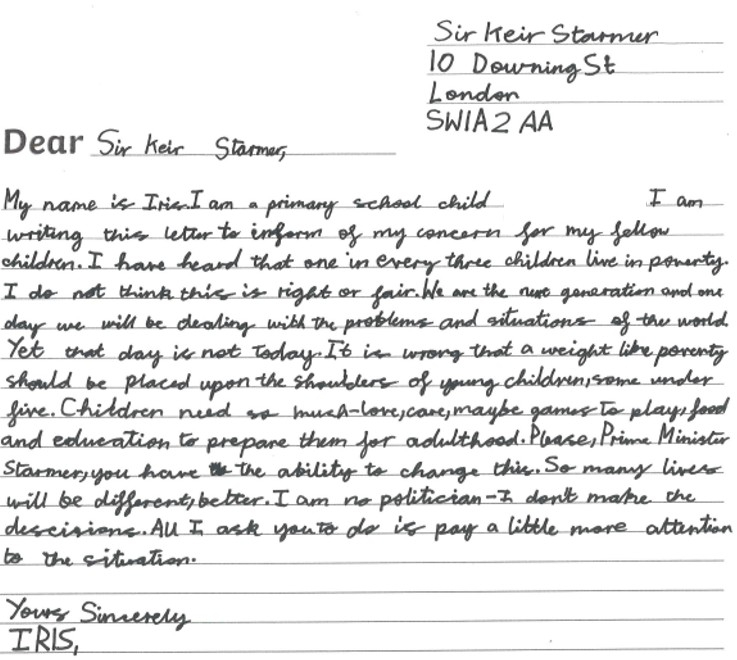 Sir Keir Starmer
10 Downing St
London
SW1A2 AA
Dear Sir Keir Starmer,
My name is Iris. I am a primary school child I am
writing this letter to inform of my concern for my fellow
children. I have heard that one in every three children live in poverty.
I do not think this is right or fair. We are the next generation and one
day we will be dealing with the problems and situations of the world.
Yet that day is not today. It is wrong that a weight like poverty
should be placed upon the shoulders of young children, some under
five. Children need so much-love, care, maybe games to play, food
and education to prepare them for adulthood. Please, Prime Minister
Starmer, you have the ability to change this. So many lives
will be different, better. I am no politician-I don't make the
descisions. All I ask you to do is pay a little more attention
to the situation.
Yours Sincerely
IRIS,